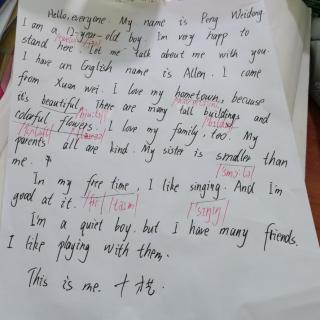 Hello, everyone. My name is Peng Weidong
I am a 12-year-old boy. I'm very happy to
stand here. Let me talk about me with you.
I have an English name is Allen. I come
from Xuan wei. I love my hometown, because
it's beautiful. There are many tall buildings and
colorful flowers. I love my family, too. My
parents all are kind. My sister is smaller than
me.
In my free time, I like singing. And I'm
good at it.
I'm a quiet boy. but I have many friends.
I like playing with them.
This is me.